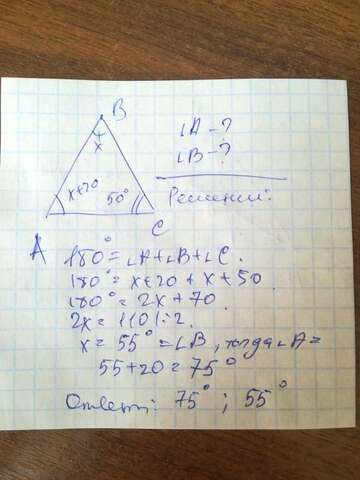 B
x
x+20
50°
A
C
∠A - ?
∠B - ?
Решение:
180° = ∠A+∠B+∠C.
180° = x+20 + x + 50.
180° = 2x + 70.
2x = 110 |:2.
x = 55° = ∠B, тогда ∠A =
55+20 = 75°
Ответ: 75° ; 55°